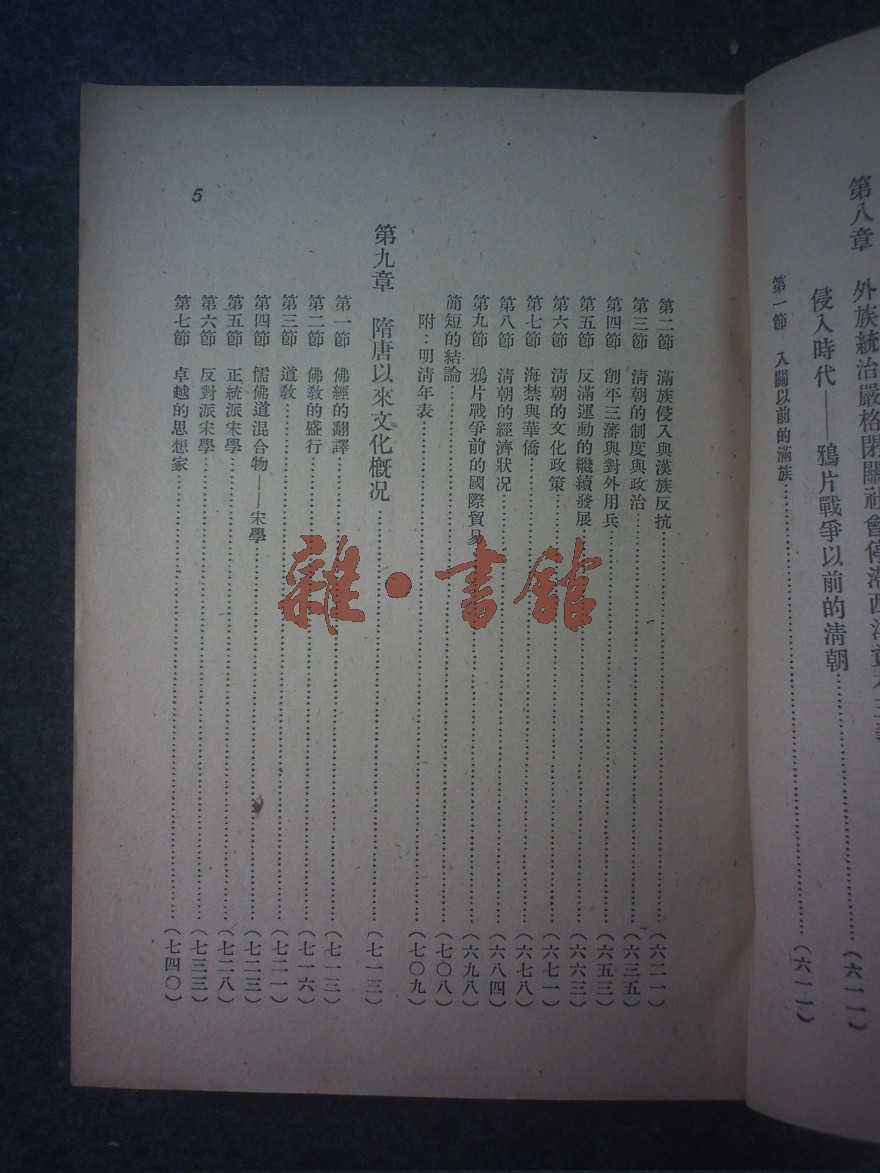 第八章　外族統治嚴格閉關社會停滯西洋資本主義
侵入時代——鴉片戰爭以前的淸朝……（六一一）
第一節　入關以前的滿族……（六一一）
第二節　滿族侵入與漢族反抗……（六二一）
第三節　淸朝的制度與政治……（六三五）
第四節　削平三藩與對外用兵……（六五三）
第五節　反滿運動的繼續發展……（六六三）
第六節　淸朝的文化政策……（六七一）
第七節　海禁與華僑……（六七八）
第八節　淸朝的經濟狀况……（六八四）
第九節　鴉片戰爭前的國際貿易……（六九八）
簡短的結論……（七〇八）
附：明淸年表……（七〇九）
第九章　隋唐以來文化槪况……（七一三）
第一節　佛經的翻譯……（七一三）
第二節　佛敎的盛行……（七一六）
第三節　道敎……（七二一）
第四節　儒佛道混合物——宋學……（七二三）
第五節　正統派宋學……（七二八）
第六節　反對派宋學……（七三三）
第七節　卓越的思想家……（七四〇）
5
雜·書館